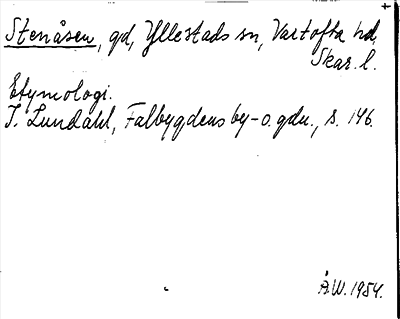 Stenåsen, gd, Yllestads sn, Vartofta hd,
Skar. l.
Etymologi.
I. Lundahl, Falbygdens by- o. gdn., s. 146.
Å.W. 1954.